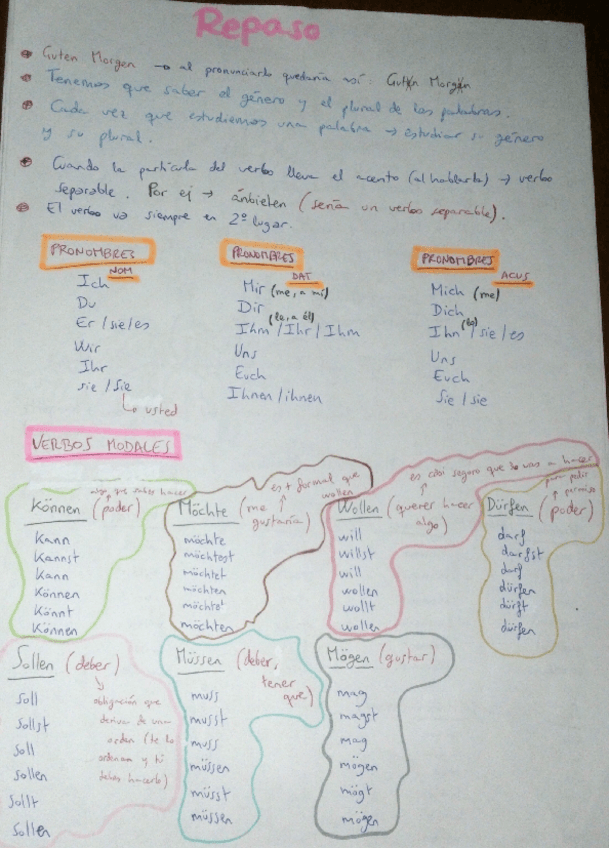 Repaso
Guten Morgen → al pronunciarlo quedaría así: Gutn Morgn
Tenemos que saber el género y el plural de las palabras.
Cada vez que estudiemos una palabra → estudiar su género
y su plural.
Cuando la partícula del verbo lleva el acento (al hablarla) → verbo
separable. Por ej → ánbieten (sería un verbo separable).
El verbo va siempre en 2º lugar.
PRONOMBRES NOM
Ich
Du
Er / sie / es
Wir
Ihr
sie / Sie
↳ usted
PRONOMBRES DAT
Mir (me, a mí)
Dir
(le, a él)
Ihm / Ihr / Ihm
Uns
Euch
Ihnen / ihnen
PRONOMBRES ACUS
Mich (me)
Dich
(lo)
Ihn / sie / es
Uns
Euch
Sie / sie
VERBOS MODALES
algo que sabes hacer
Können (poder)
Kann
Kannst
Kann
Können
Könnt
Können
es + formal que
wollen
Möchte (me
gustaría)
möchte
möchtest
möchtet
möchten
möchtet
möchten
es casi seguro que lo vas a hacer
Wollen (querer hacer
algo)
will
willst
will
wollen
wollt
wollen
para pedir
permiso
Dürfen (poder)
darf
darfst
darf
dürfen
dürft
dürfen
Sollen (deber)
obligación que
deriva de una
orden (te lo
ordenan y tú
debes hacerlo)
soll
sollst
soll
sollen
sollt
sollen
Müssen (deber,
tener
que)
muss
musst
muss
müssen
müsst
müssen
Mögen (gustar)
mag
magst
mag
mögen
mögt
mögen